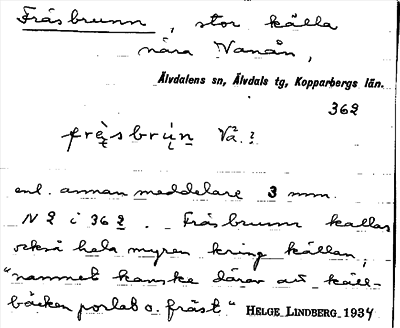 Fräsbrunn, stor källa
nära Vanån,
Älvdalens sn, Älvdals tg, Kopparbergs län.
362
fräsbrún Vä.:
enl. annan meddelare 3 mm.
N 2 i 362. Fräsbrunn kallas
också hela myren kring källan,
"namnet kanske därav att käll-
bäcken porlat o. fräst." HELGE LINDBERG 1934